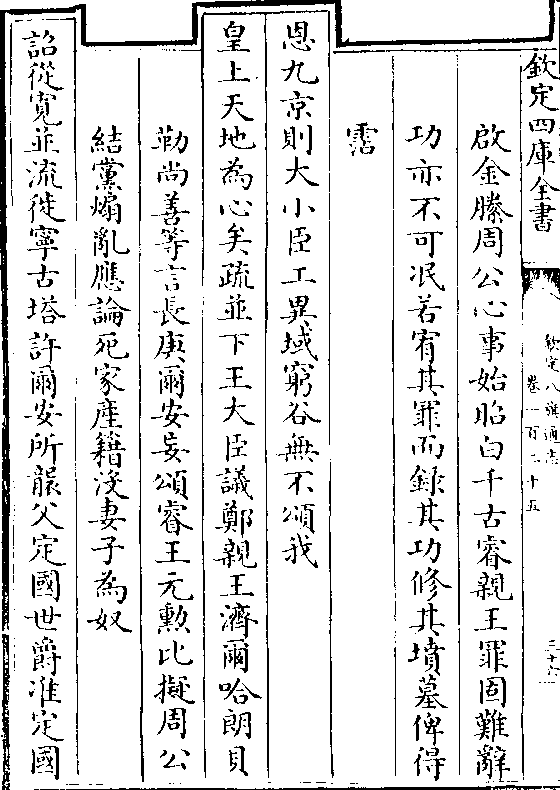 欽定四庫全書
欽定八旗通志
卷一百
十五
三十六
啟金縢周公心事始昭白千古睿親王罪固難辭
功亦不可泯若宥其罪而錄其功修其墳墓俾得
霑
恩九京則大小臣工異域窮谷無不頌我
皇上天地為心矣疏並下王大臣議鄭親王濟爾哈朗貝
勒尚善等言長庚爾安妄頌睿王元勲比擬周公
結黨煽亂應論死家產籍没妻子為奴
詔從寛並流徙寧古塔許爾安所襲父定國世爵准定國